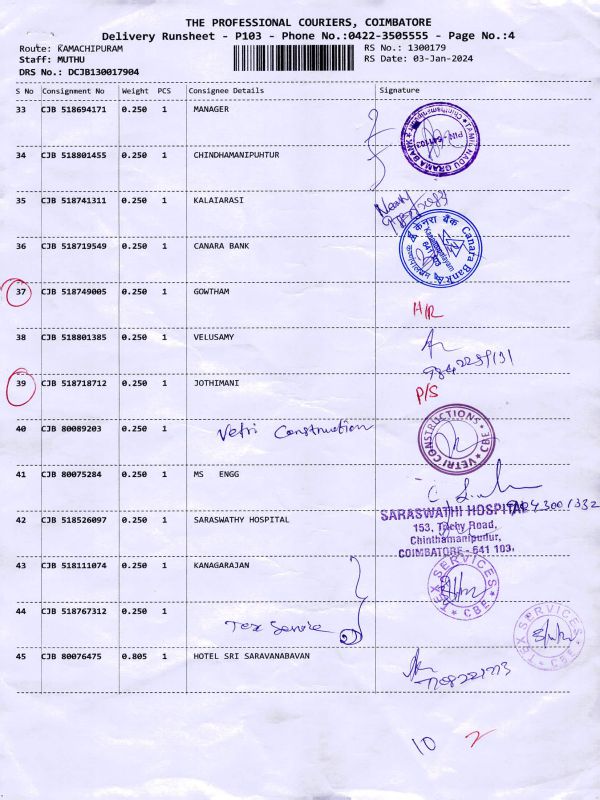 THE PROFESSIONAL COURIERS, COIMBATORE
Delivery Runsheet - P103 - Phone No.:0422-3505555 - Page No.:4
Route: KAMACHIPURAM RS No.: 1300179
Staff: MUTHU RS Date: 03-Jan-2024
DRS No.: DCJB130017904
S No Consignment No Weight PCS Consignee Details Signature
33 CJB 518694171 0.250 1 MANAGER
TAMIL NADU GRAMA BANK
PIN - 641103
34 CJB 518801455 0.250 1 CHINDHAMANIPUHTUR
35 CJB 518741311 0.250 1 KALAIARASI
36 CJB 518719549 0.250 1 CANARA BANK
केनरा बैंक Canara Bank
641 103
37 CJB 518749005 0.250 1 GOWTHAM H/R
38 CJB 518801385 0.250 1 VELUSAMY
39 CJB 518718712 0.250 1 JOTHIMANI P/S
40 CJB 80089203 0.250 1 Vetri Construction
VETRI CONSTRUCTIONS CBE
41 CJB 80075284 0.250 1 MS ENGG
42 CJB 518526097 0.250 1 SARASWATHY HOSPITAL
SARASWATHI HOSPITAL
153, Trichy Road,
Chinthamanipudur,
COIMBATORE - 641 103.
43 CJB 518111074 0.250 1 KANAGARAJAN
TEX SERVICES CBE
44 CJB 518767312 0.250 1 Tex Service
TEX SERVICES CBE
45 CJB 80076475 0.805 1 HOTEL SRI SARAVANABAVAN
10 2